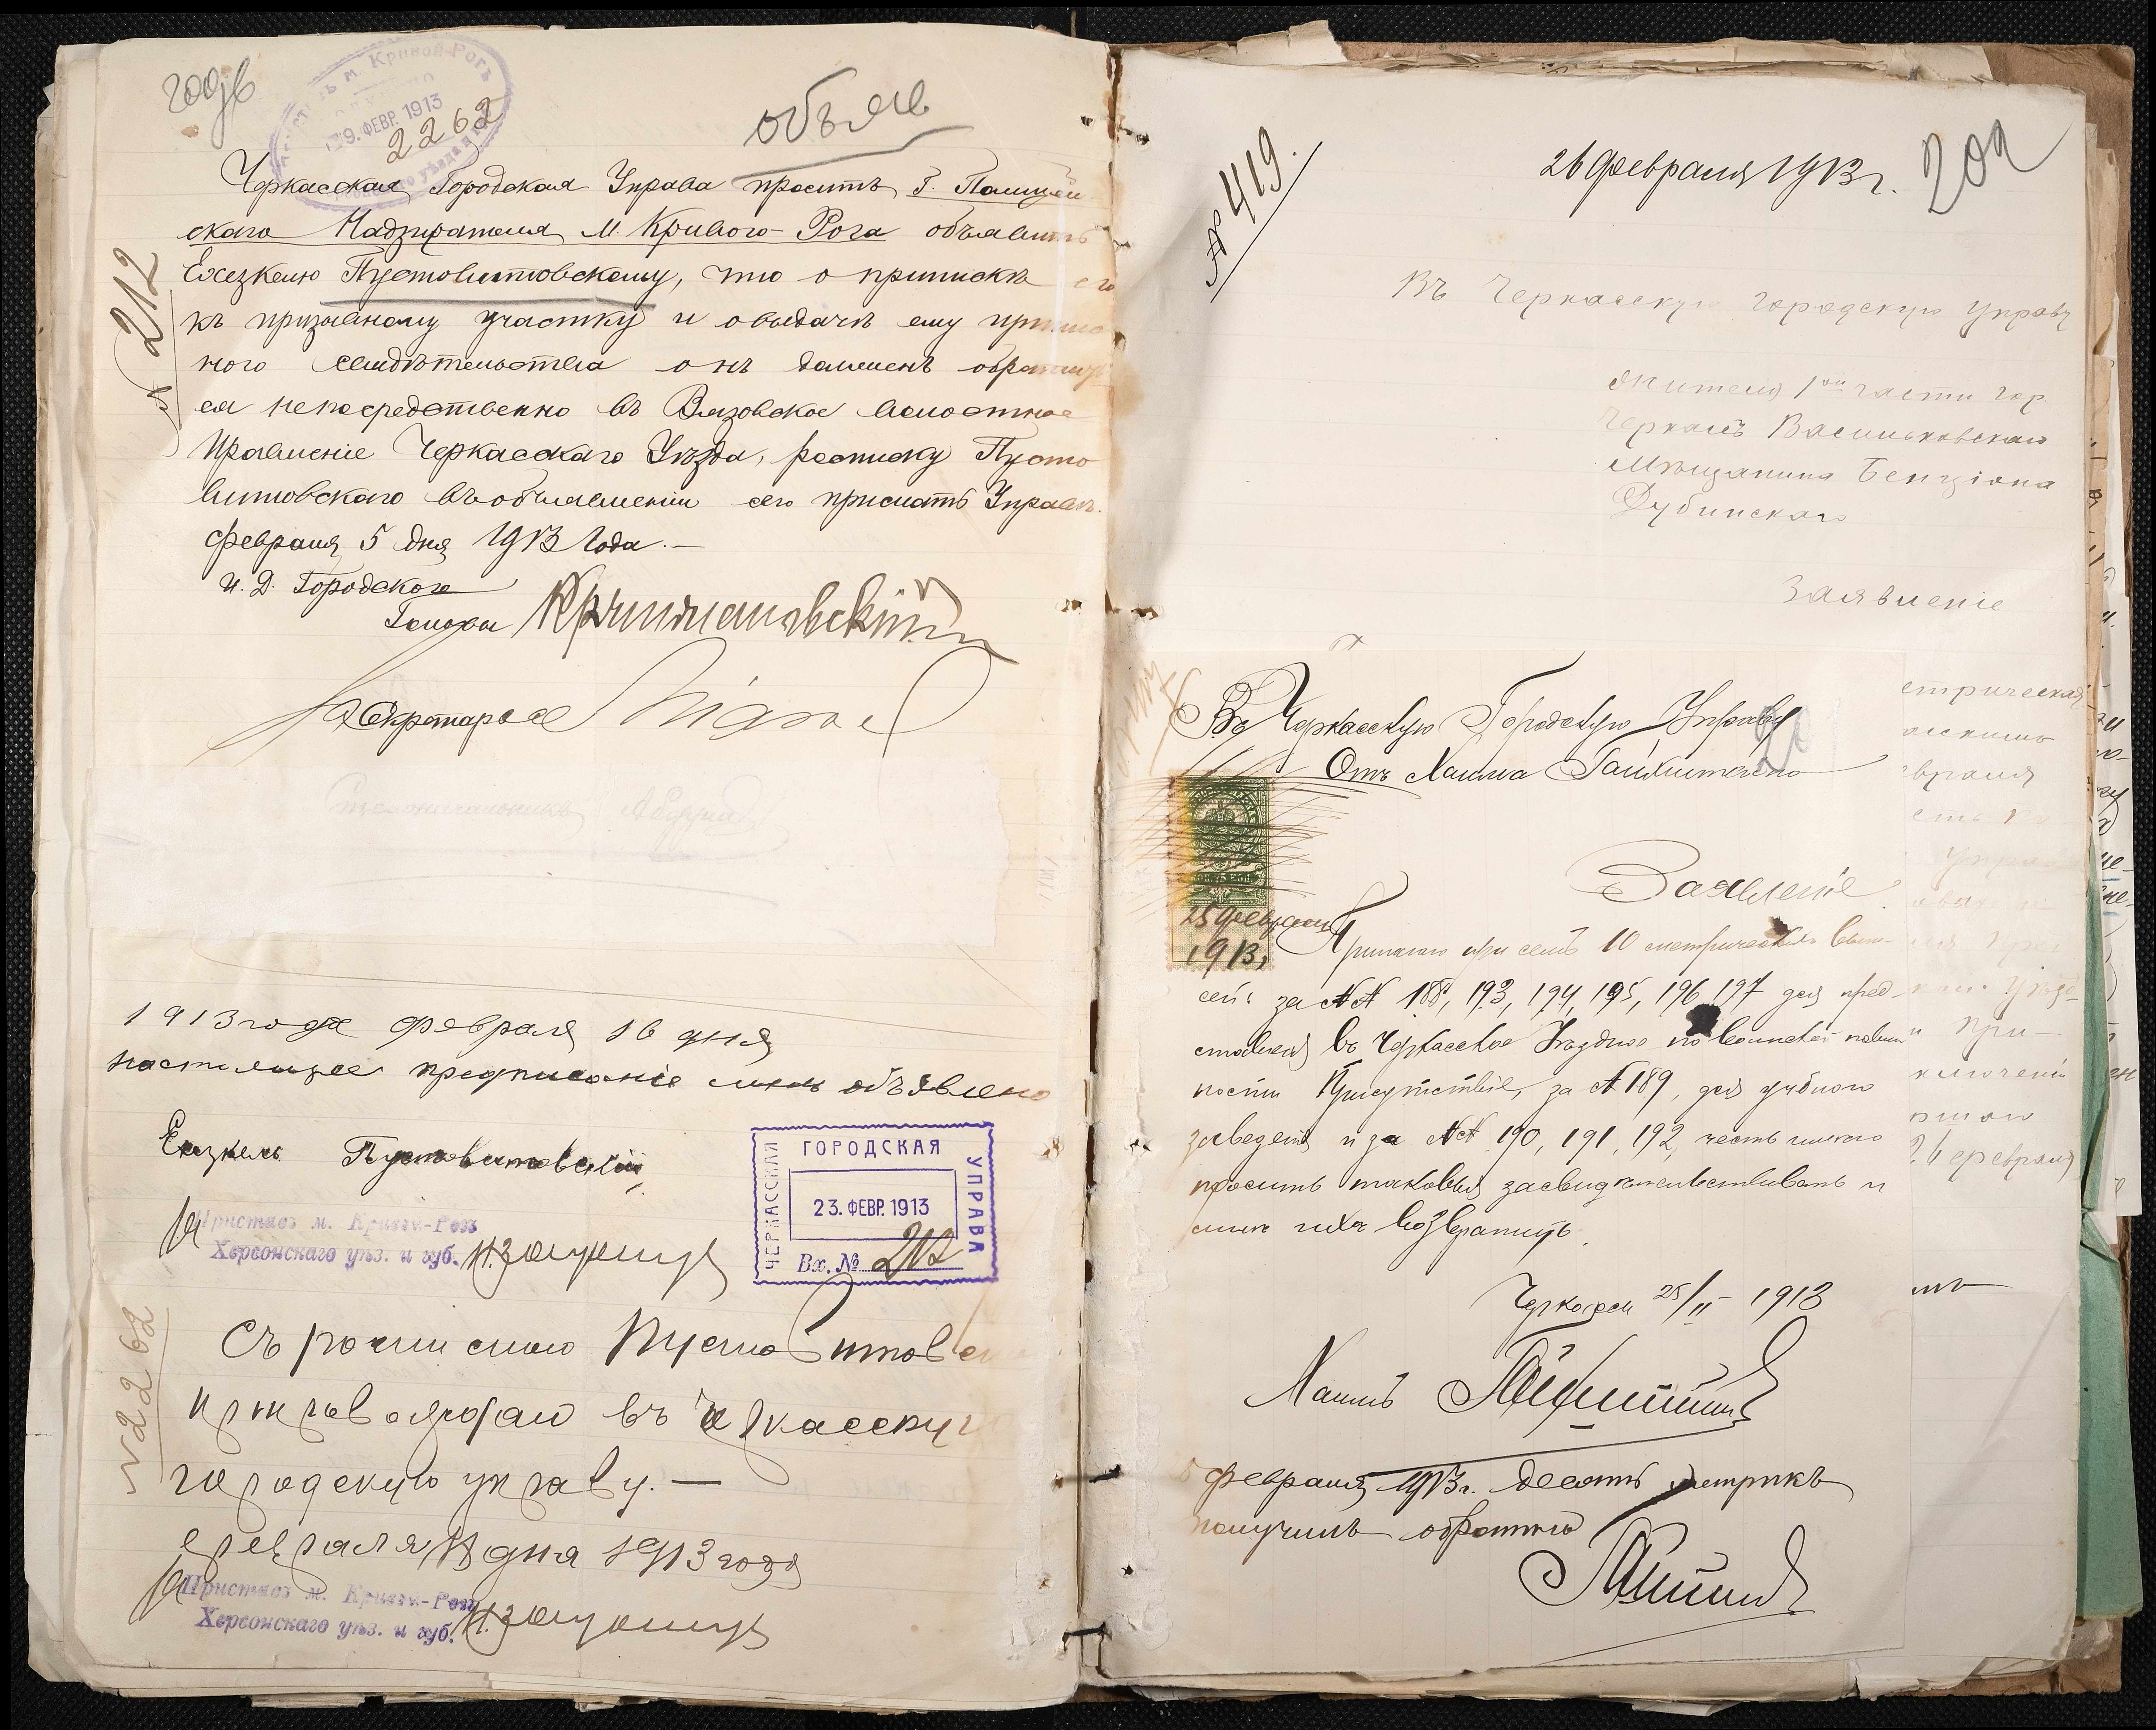 200 об
Приставъ м. Кривой-Рогъ
9. ФЕВР. 1913
2262
объяв
Черкасская Городская Управа проситъ Г. Полицей
скаго Надзирателя М. Кривого-Рога объявить
Ехезкелю Пустовитовскому, что о припискѣ его
къ призывному участку и о выдачѣ ему припис
ного свидѣтельства онъ долженъ обратить
ся непосредственно въ Вязовское Волостное
Правленіе Черкасскаго Уѣзда, росписку Пусто
витовскаго въ объявленіи сего прислать Управѣ.
Февраля 5 дня 1913 года.—
№ 212
И. Д. Городского
Головы
Секретарь
Столоначальникъ
1913 года Февраля 16 дня
настоящее предписаніе мнѣ объявлено
Ехезкель Пустовитовскій
Приставъ м. Кривой-Рогъ
Херсонскаго уѣз. и губ.
ЧЕРКАССКАЯ ГОРОДСКАЯ УПРАВА
23. ФЕВР. 1913
Вх. № 212
№ 2262
Съ роспискою Пустовитовск
препровождаю въ Черкасскую
городскую управу.—
февраля 18 дня 1913 года
Приставъ м. Кривой-Рогъ
Херсонскаго уѣз. и губ.
№ 419.
26 февраля 1913 г.
201
Въ Черкасскую Городскую Управу
жителя 1ой части гор.
Черкасъ Васильковскаго
Мѣщанина Бенціона
Дубинскаго
Заявленіе
Въ Черкасскую Городскую Управу
Отъ Хаима
Заявленіе
25 февраля
1913,
Прилагаю при семъ 10 метрическихъ выпи-
сей: за №№ 188, 193, 194, 195, 196 197 для пред-
ставленія въ Черкасское Уѣздное по воинской повин
ности Присутствіе, за № 189, для учебного
заведенія и за №№ 190, 191, 192, честь имѣю
просить таковыя засвидѣтельствовать и
мнѣ ихъ возвратить.
Черкассы 25/II 1913
Хаимъ
февраля 1913 г. десять метрикъ
получилъ обратно
етрическая
враля
при-
ключеніи
24 февраля